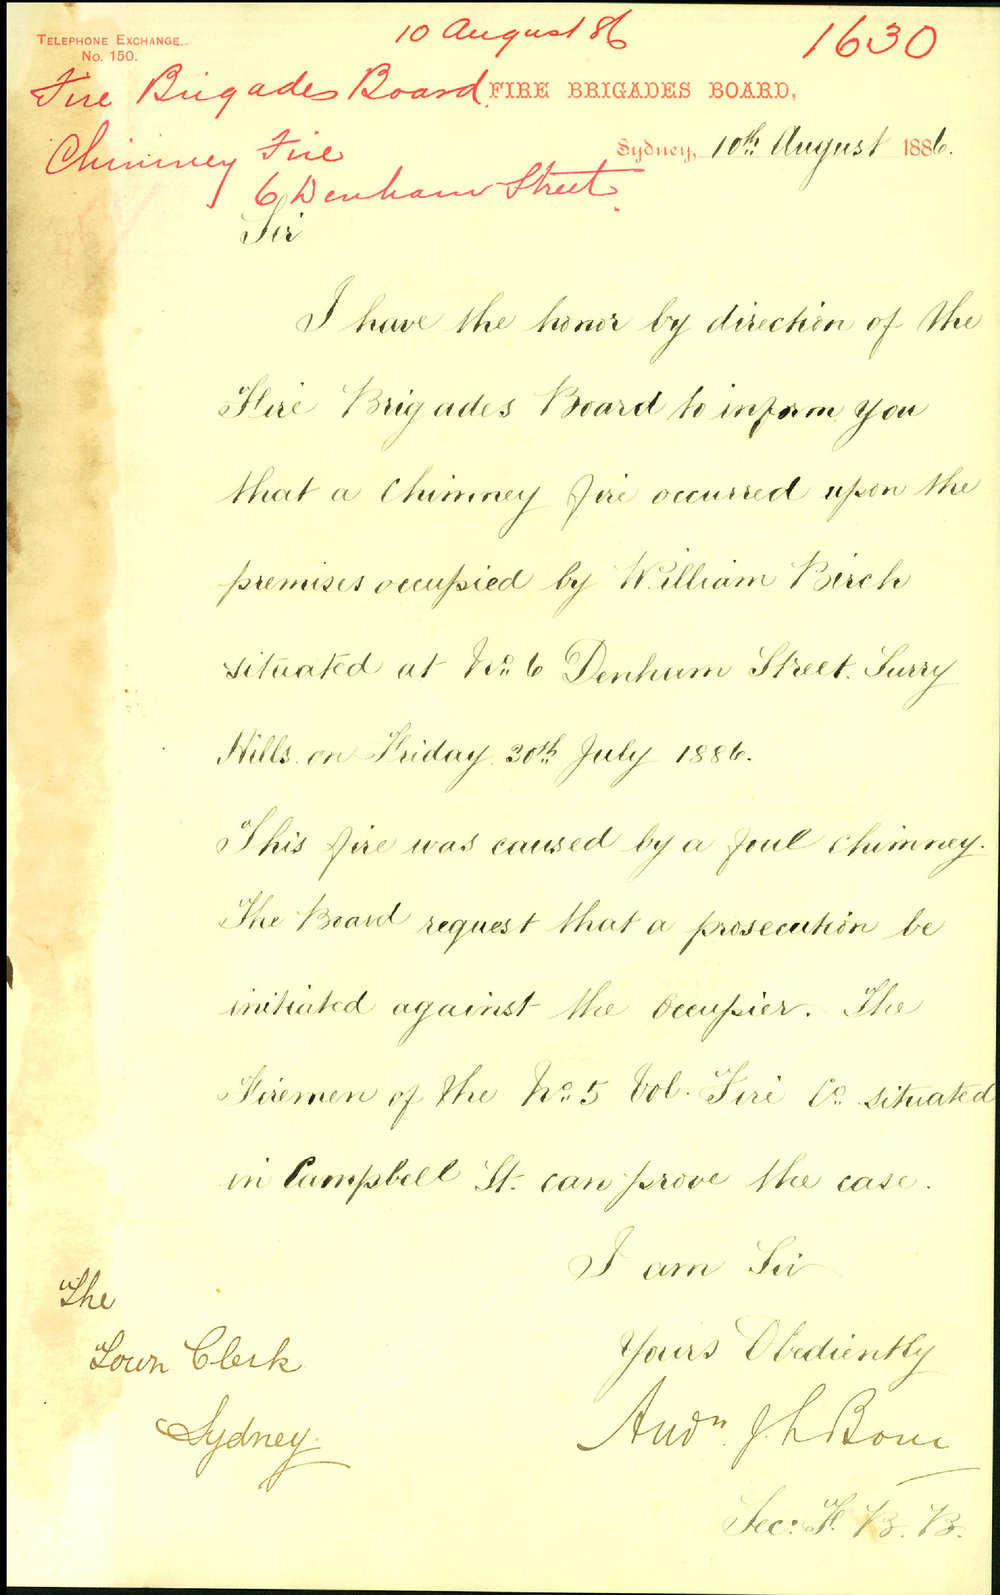 TELEPHONE EXCHANGE
No. 150.
10 August 86
1630
Fire Brigades Board
FIRE BRIGADES BOARD,
Chimney Fire
Sydney, 10th August 1886.
6 Denham Street
Sir
I have the honor by direction of the
Fire Brigades Board to inform you
that a Chimney fire occurred upon the
premises occupied by William Birch
situated at No. 6 Denham Street. Surry
Hills. on Friday 30th July 1886.
This fire was caused by a foul chimney.
The Board request that a prosecution be
initiated against the Occupier. The
Firemen of the No. 5 Vol. Fire Co. situated
in Campbell St. can prove the case.
I am Sir
Yours Obediently
Andw. J. L
Sec: F. B. B.
The
Town Clerk
Sydney.